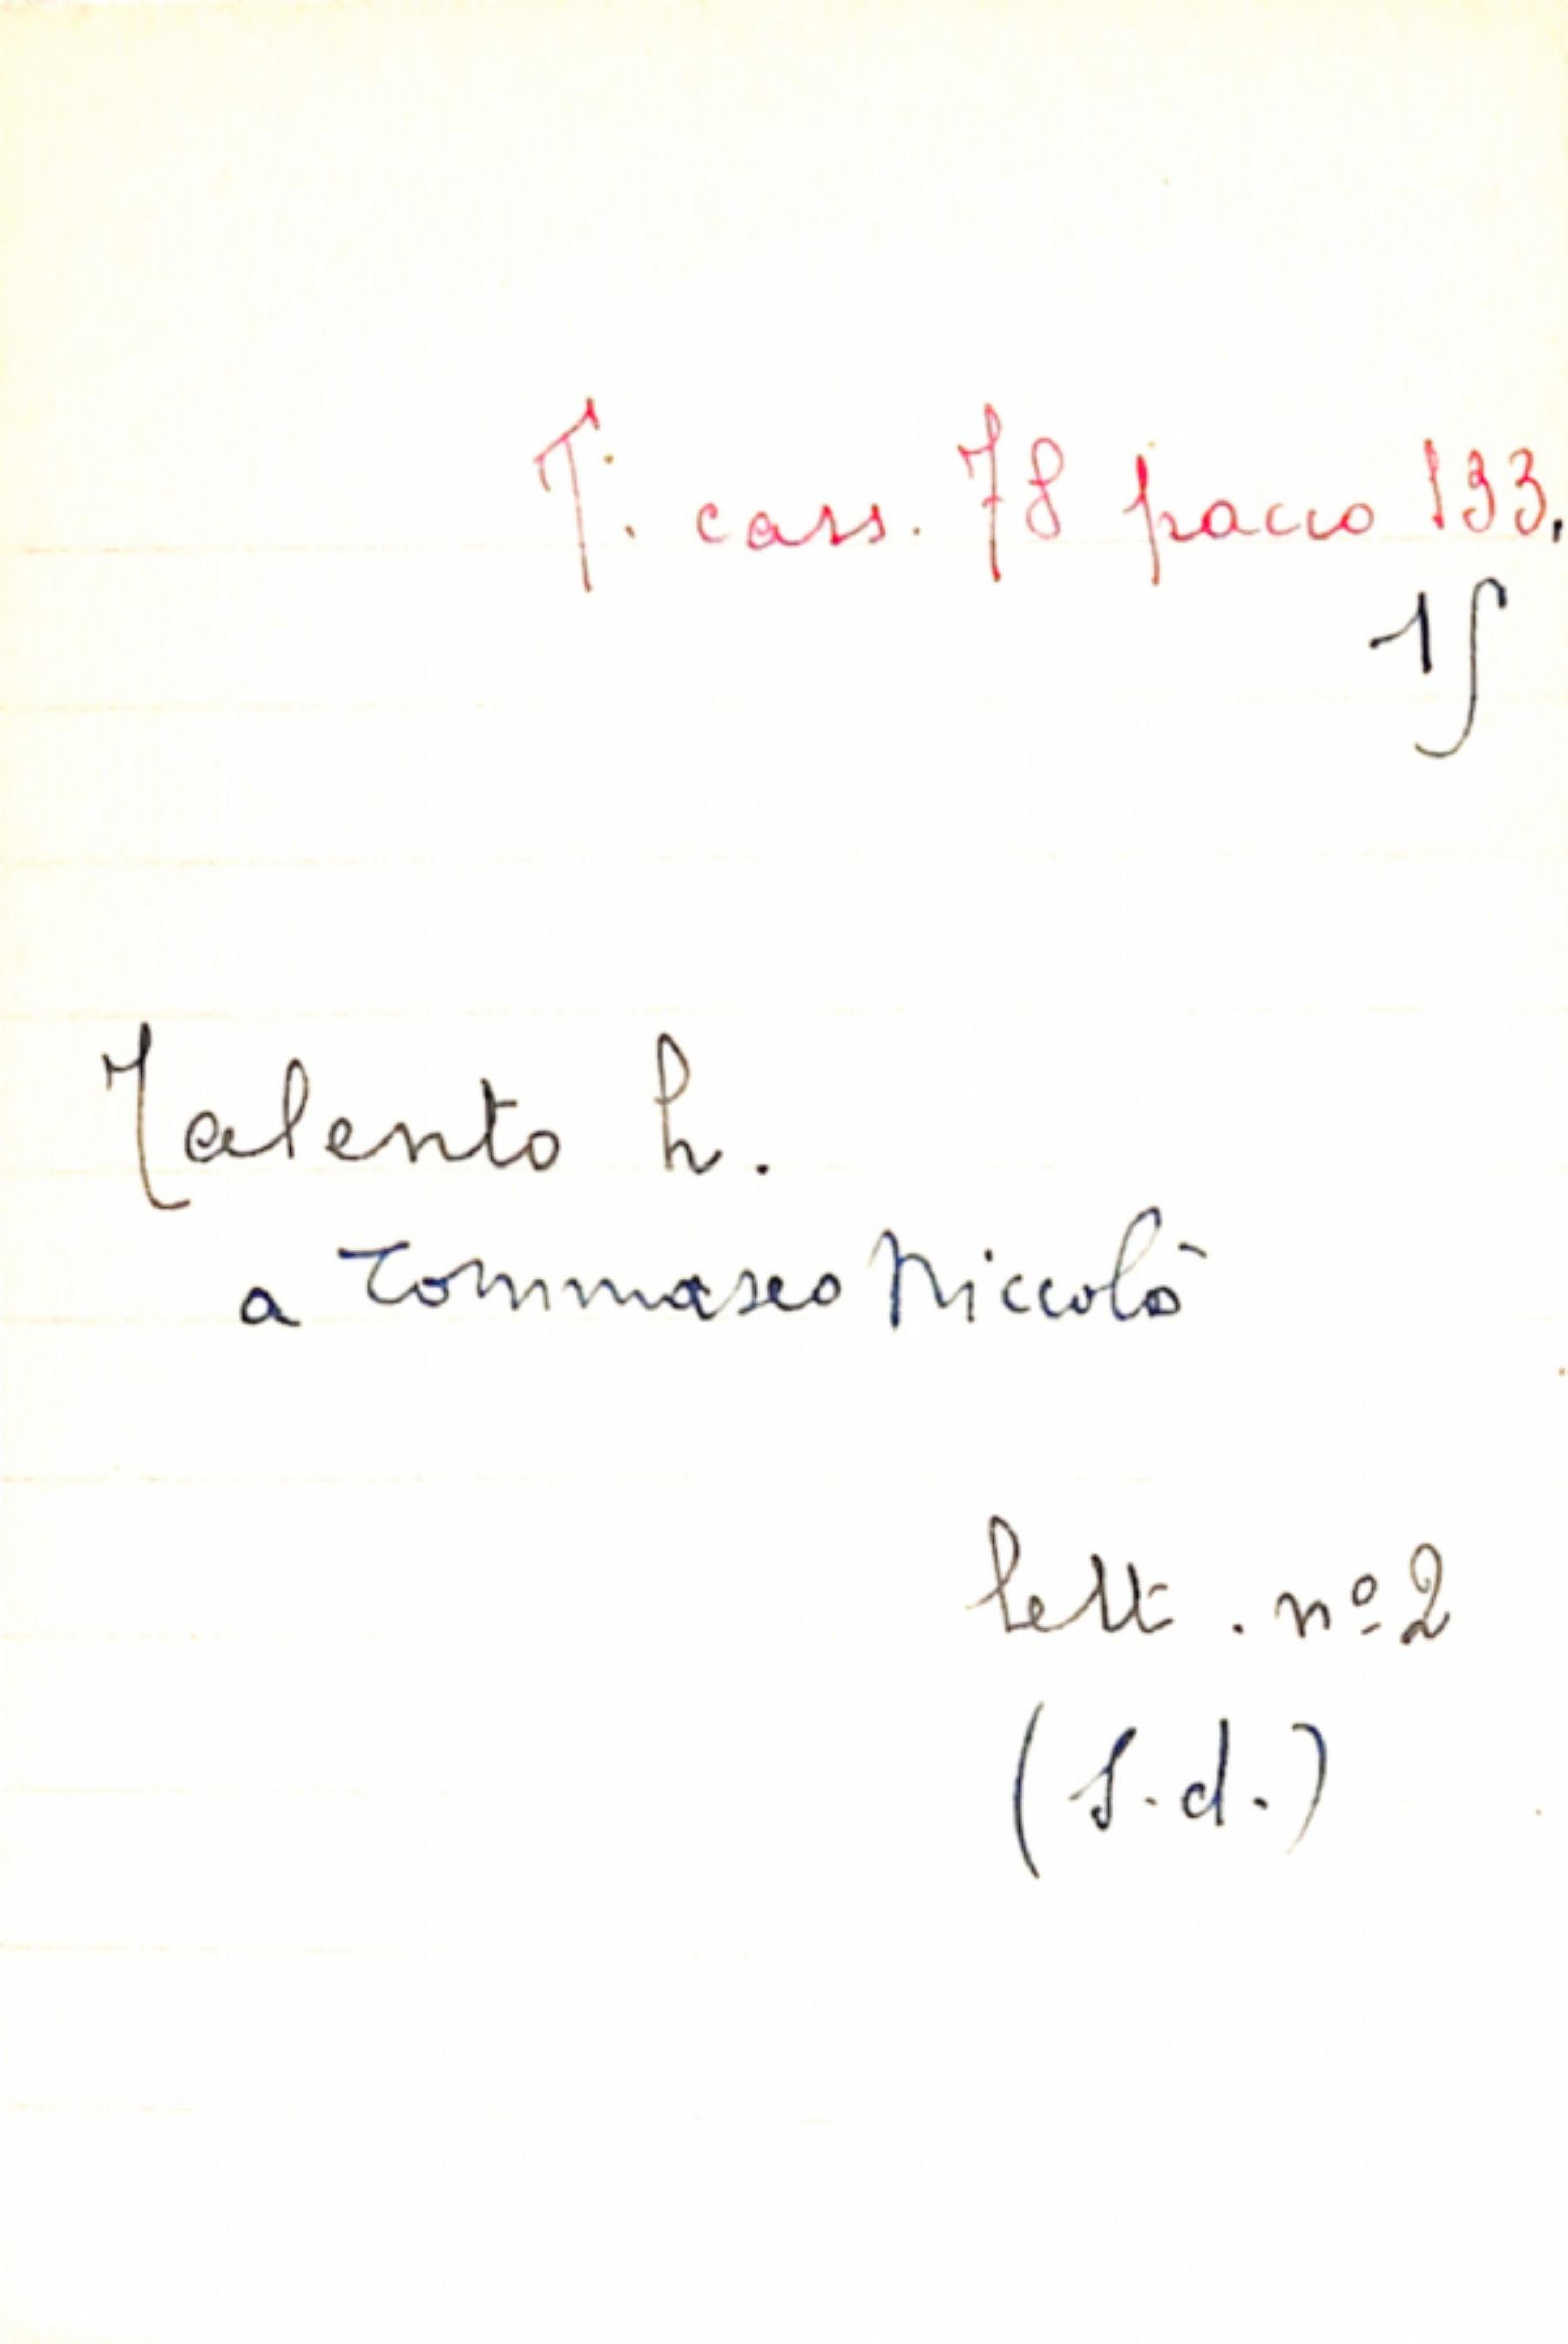 T. cass. 78 pacco 133.
15
Talento L.
a Tommaseo Niccolò
Lett. nº 2
(S.d.)